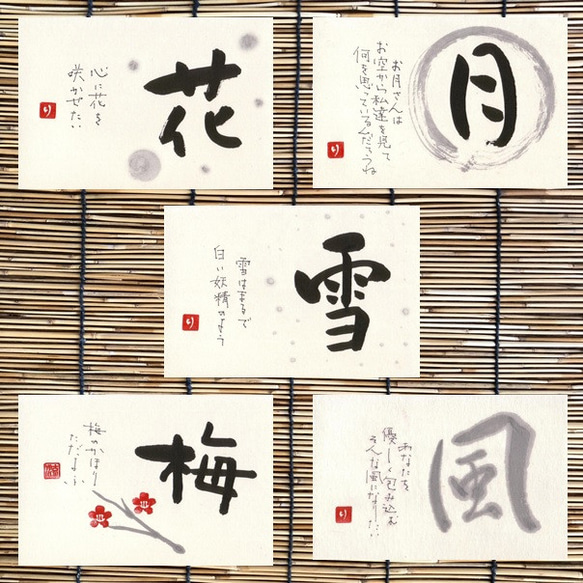 花
心に花を
咲かせたい
り
月
お月さんは
お空から私達を見て
何を思っているんだろうね
り
雪
雪はまるで
白い妖精のよう
り
梅
梅のかほり
ただよふ
風
あなたを
優しく包み込む
そんな風になりたい
り